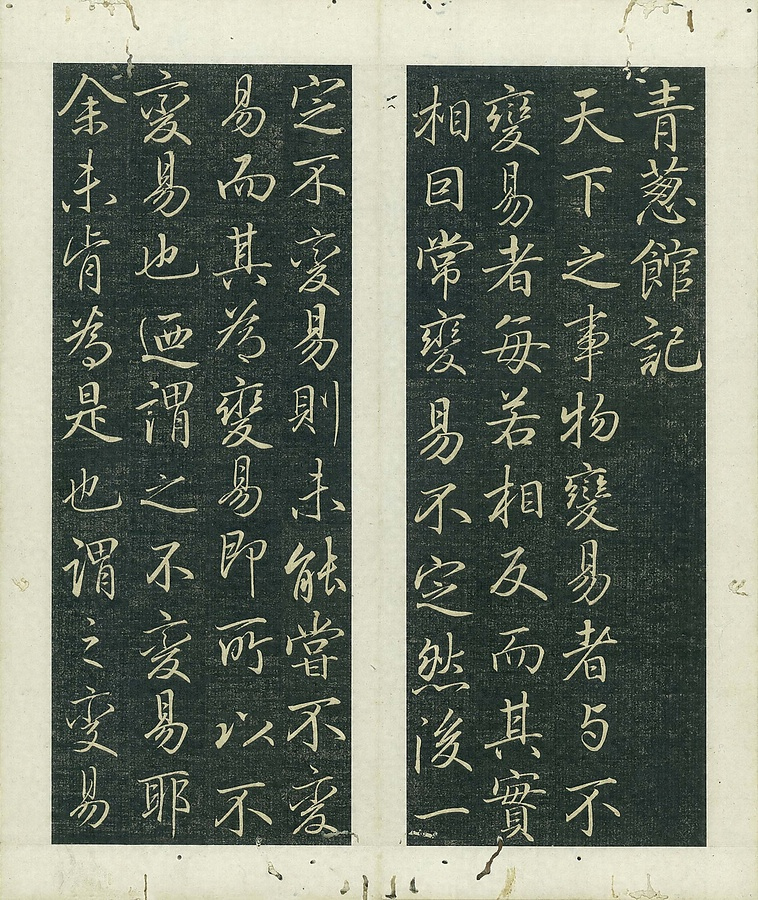 青蔥館記
天下之事物變易者与不
變易者每若相反而其實
相因常變易不定然後一
定不變易則未能當不變
易而其為變易即所以不
變易也迺謂之不變易耶
余未肯為是也謂之變易